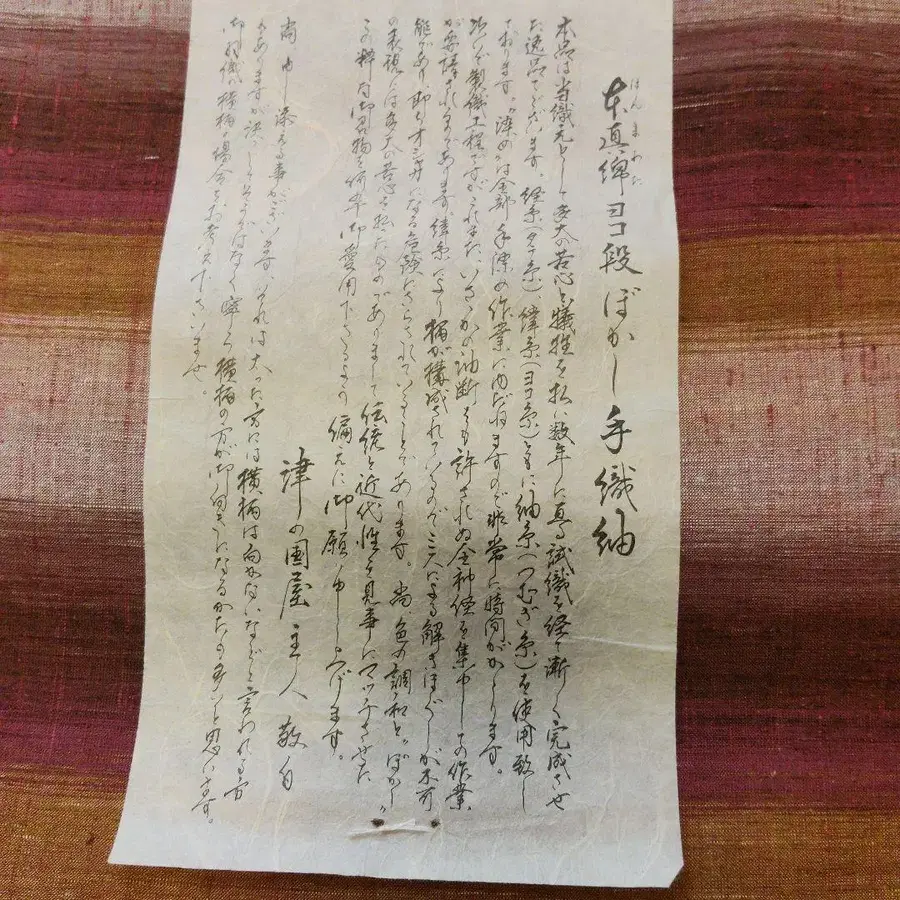 ほんまわた
本真綿ヨコ段ぼかし手織紬
本品は当織元として多大の苦心と犠牲を払い数年に亘る試織を経て漸く完成させ
た逸品でございます。経糸(タテ糸)緯糸(ヨコ糸)ともに紬糸(つむぎ糸)を使用致し
ております。“染め”は全部手染の作業にゆだねますので非常に時間がかゝります。
次いで製織工程ですがこれまたいさゝかの油断をも許されぬ全神経を集中しての作業
が要請されるのであります。緯糸により柄が構成されているので ミスによる解きほぐしが不可
能であり、即ちオシャカになる危険にさらされていることであります。尚、色の調和と“ぼかし”
の表現には多大の苦心を払ったのでありまして伝統と近代性を見事にマッチさせた
この粋な御召物を何卒御愛用下さるよう偏えに御願い申し上げます。
津の国屋主人 敬白
尚、申し添える事がございます。それは太った方には横柄は向かないなどと言われる方
がありますが決してそうではなく寧ろ横柄の方が御向きになるかたが多いと思います。
御相撲の横柄の場合をお考え下さいませ。